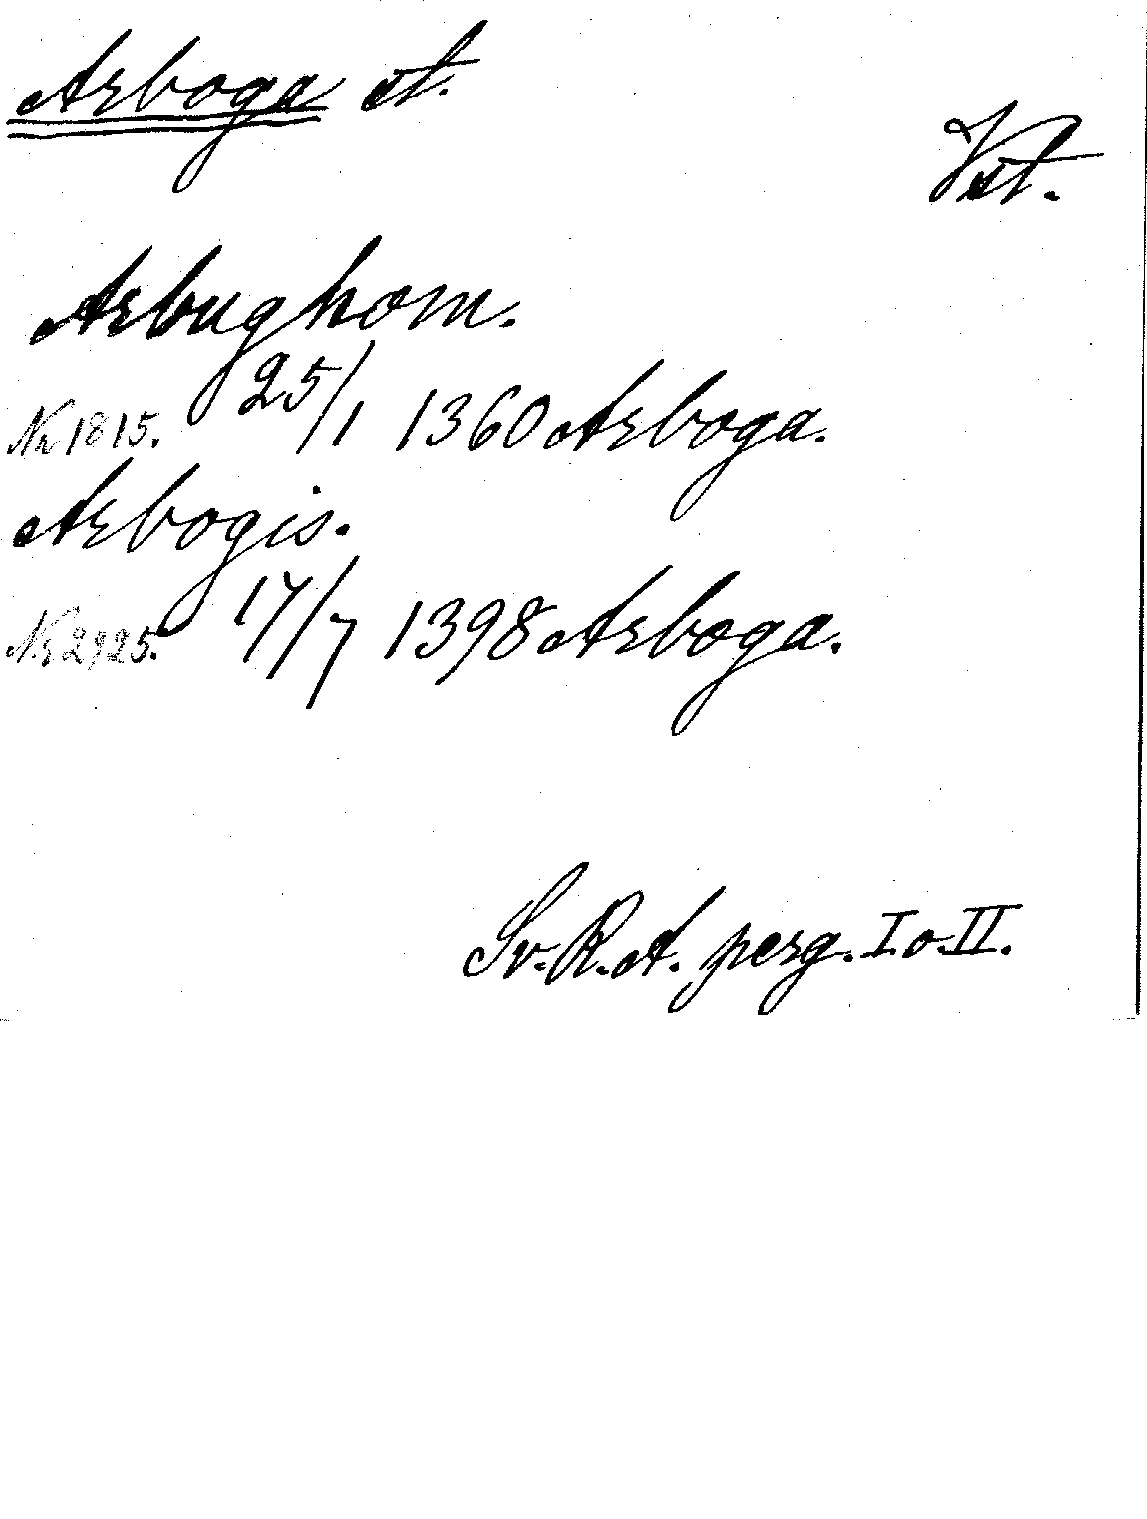 Arboga st.
Vst.
Arbughom.
Nr 1815. 25/1 1360 Arboga.
Arbogis.
Nr 2925. 17/7 1398 Arboga.
Sv. R. A. perg. I o. II.